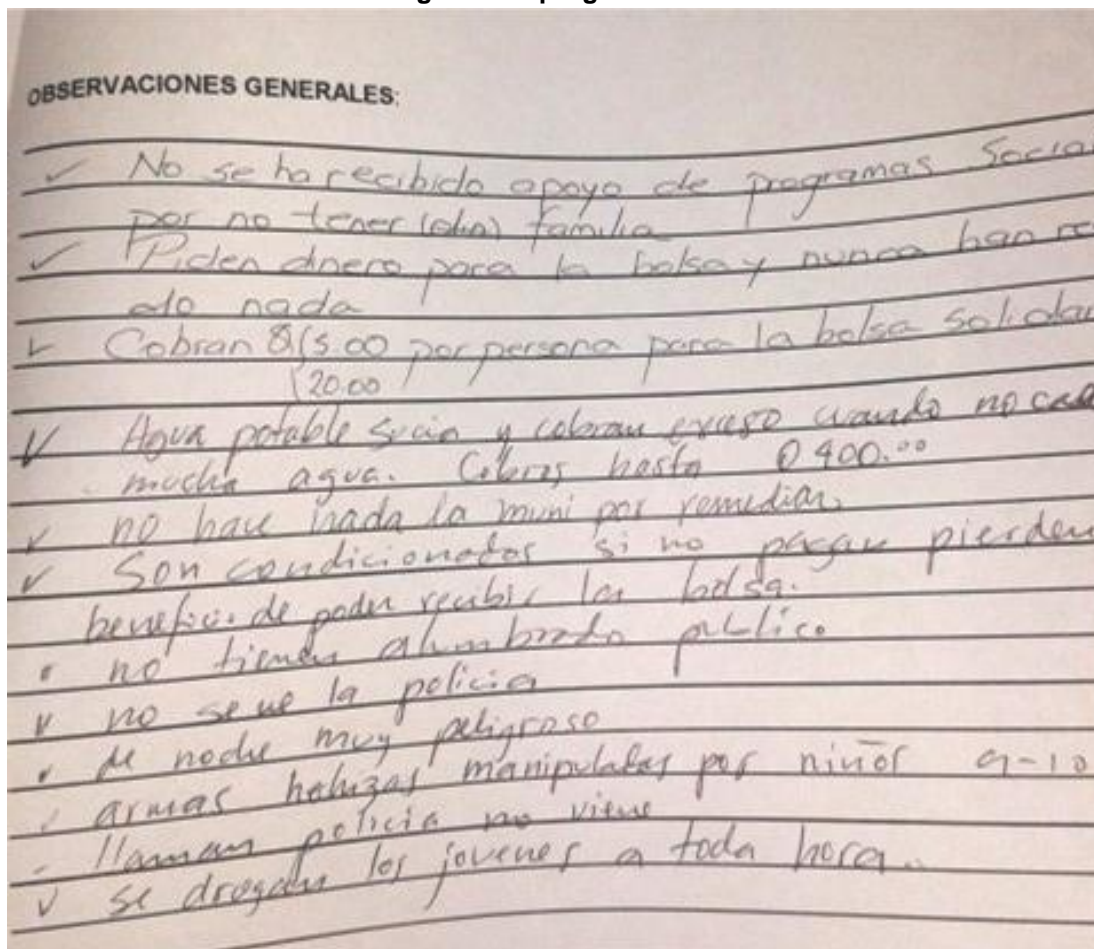 OBSERVACIONES GENERALES:
✓ No se ha recibido apoyo de programas Social
por no tener familia
✓ Piden dinero para la bolsa y nunca han re
do nada
✓ Cobran Q15.00 por persona para la bolsa solidar
20.00
✓ Agua potable sucia y cobran exceso cuando no cae
mucha agua. Cobros hasta Q 400.00
✓ no hace nada la muni por remediar.
✓ Son condicionados si no pagan pierden
beneficio de poder recibir la bolsa.
✓ no tienen alumbrado publico
✓ no se ve la policia
✓ de noche muy peligroso
✓ armas hechizas manipuladas por niños 9-10
✓ llaman policia no viene
✓ se drogan los jovenes a toda hora.